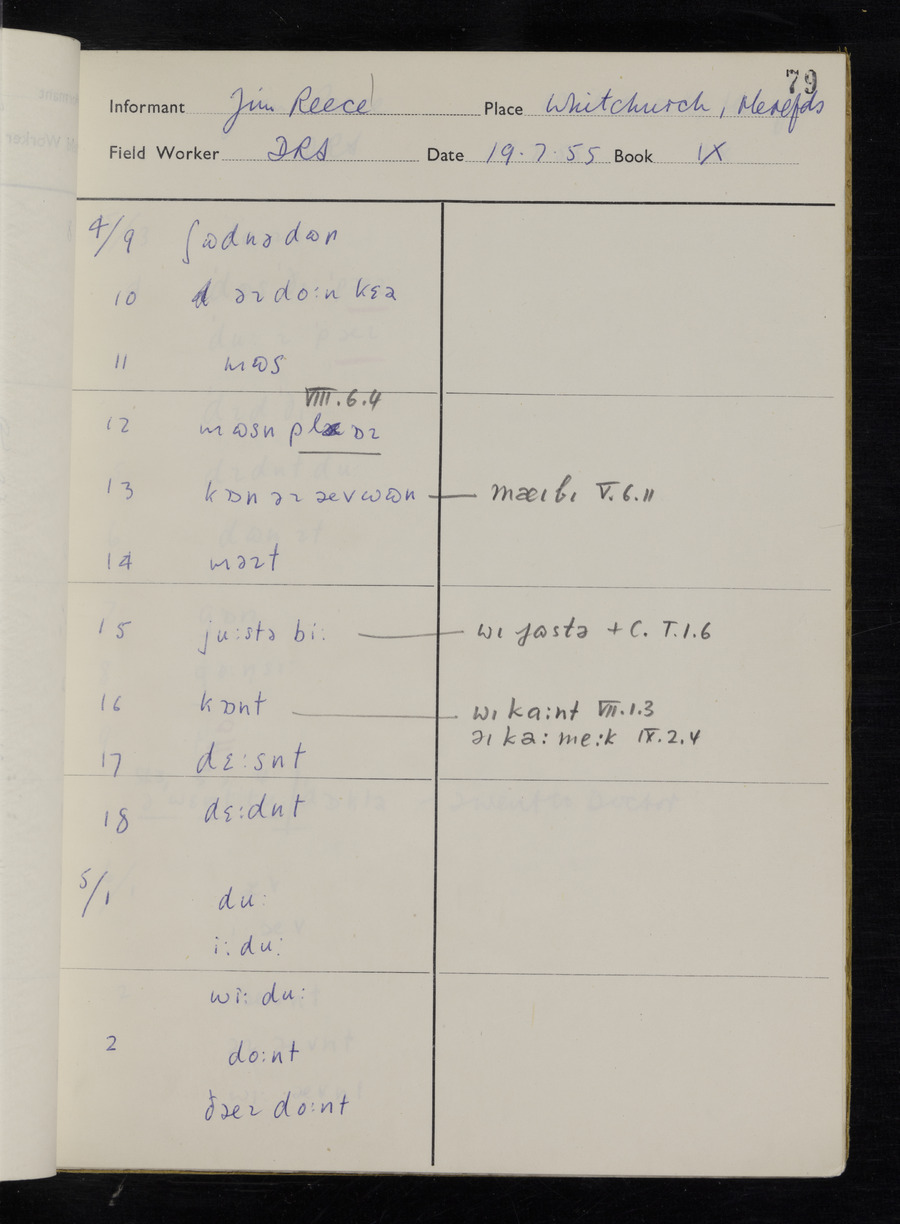 79
Informant Jim Reece Place Whitchurch, Herefds
Field Worker DRS Date 19.7.55 Book IX
4/9 ʃɷdnə dɷn
10 əɪ doːn kɛə
11 mɷs
VIII.6.4
12 mɷsn plɒɪ
13 kɒn əɪ ævwɷn mæɪbɪ V.6.11
14 məɪt
15 juːstə biː wɪ jɷstə + C. T.1.6
16 kɒnt wɪ kaːnt VII.1.3
əɪ kəː meːk IX.2.4
17 dɛːsnt
18 dɛːdnt
5/1 duː
iː duː
wiː duː
2 doːnt
ðəɪ doːnt